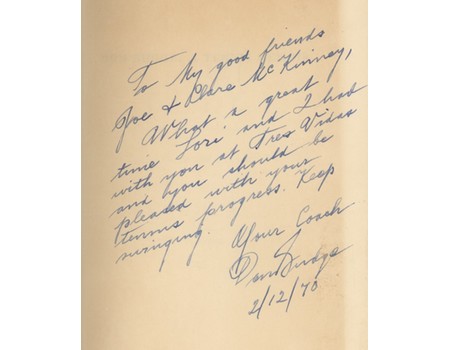 To My good friends
Joe & Clare McKinney,
What a great
time Lori and I had
with you at Tres Vidas
and you should be
pleased with your
tennis progress. Keep
swinging.
Your Coach
Don Budge
2/12/70